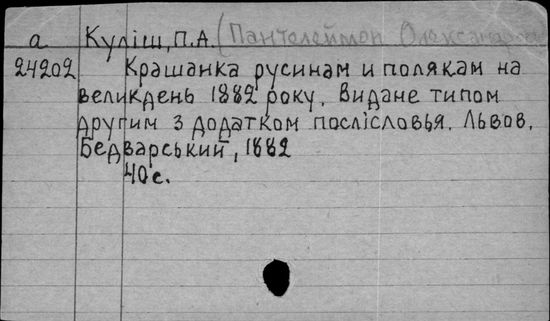 а Куліш, П.А. (Пантелеймон Олександрович
24202 Крашанка русинам и полякам на
великдень 1882 року. Видане типом
другим з додатком послісловья. Львов,
Бедварський, 1882
40 с.